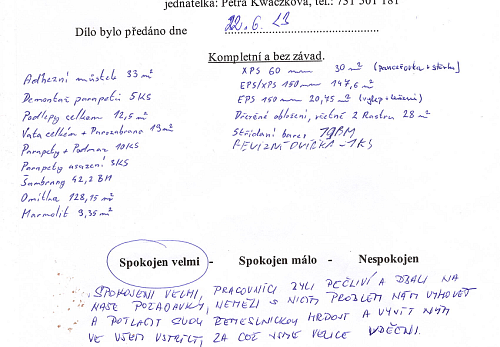 jednatelka: Petra Kwaczková, tel.: 731 501 181
Dílo bylo předáno dne 22. 6. 23
Kompletní a bez závad.
Adhezní můstek 33 m²
Demontáž parapetů 5KS
Podlepy celkem 12,5 m²
Vata celkem + Parozábrana 19m²
Parapety + Podmaz 10KS
Parapety usazení 3KS
Šambrány 42,2 BM
Omítka 128,15 m²
Marmolit 9,35 m²
XPS 60 mm 30 m² (pancéřovka + stěrka)
EPS/XPS 150mm 147,6 m²
EPS 150 mm 20,45 m²
Dřevěné obložení, včetně 2 Rastru 28 m²
Střídání barev 19BM
REVIZNÍ DVÍŘKA - 1KS
Spokojen velmi - Spokojen málo - Nespokojen
SPOKOJENI VELMI, PRACOVNÍCI BYLI PEČLIVÍ A DBALI NA
NAŠE POŽADAVKY, NEMĚLI S NIČÍM PROBLÉM NÁM VYHOVĚT
A POTLAČIT SVOU ŘEMESLNICKOU HRDOST A VYJÍT NÁM
VE VŠEM VSTŘÍCT, ZA COŽ JSME VELICE VDĚČNI.